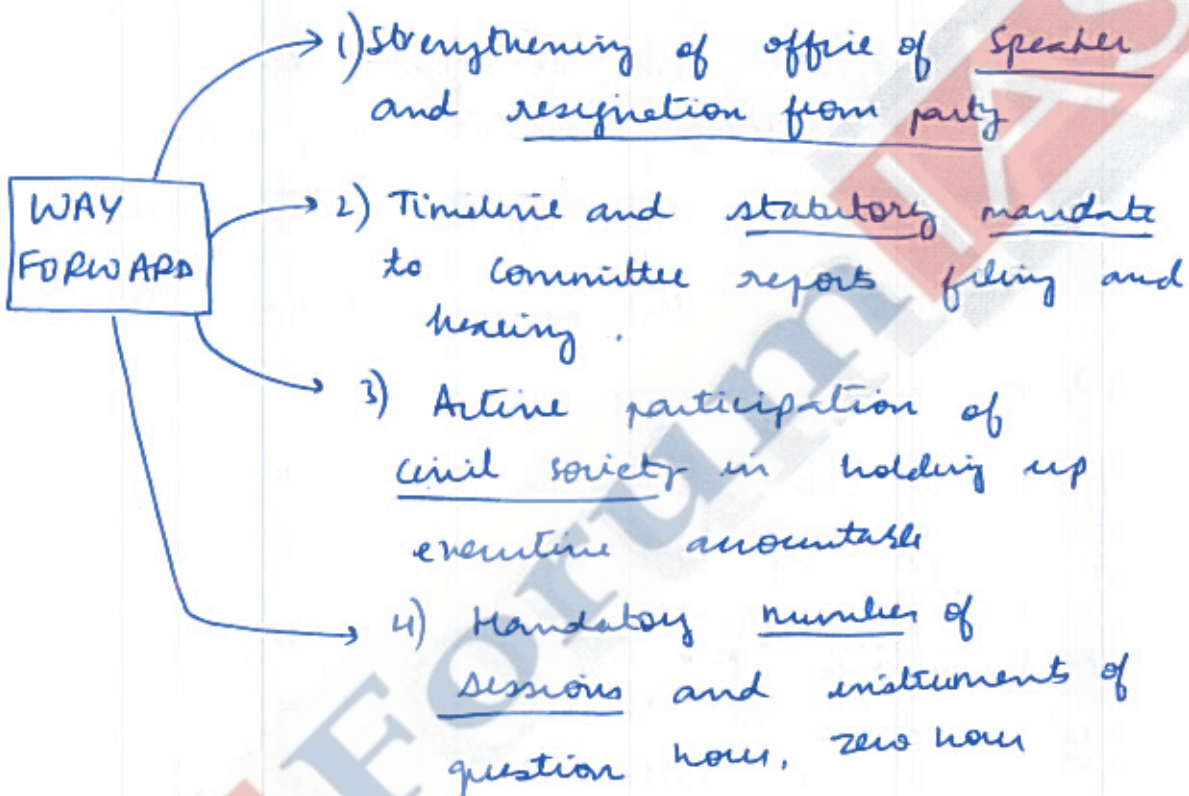 1) Strengthening of office of Speaker
and resignation from party
WAY
FORWARD
2) Timeline and statutory mandate
to committee reports filing and
hearing.
3) Active participation of
civil society in holding up
executive accountable
4) Mandatory number of
sessions and instruments of
question hour, zero hour
Forum IAS